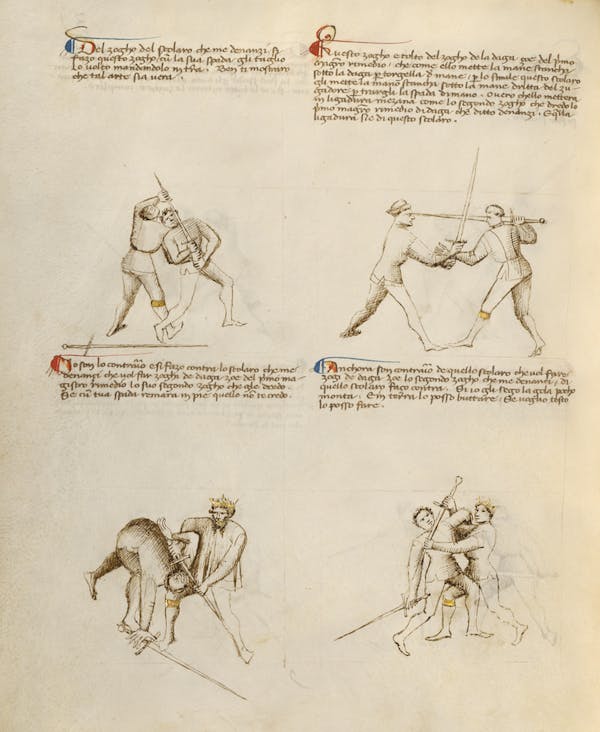 Del zogho del scolaro che me denanzi si
fazo questo zogho cu la sua spada gli taglio
lo volto mandandolo in tera. Ben ti mostraro
che tal arte sia vera.
Questo zogho e tolto del zogho de la daga zoe del pmo
magro rimedio, che come ello mette la mane stancha
sotto la daga p torgella d mane, p lo simile questo scolaro
gli mette la mano stancha sotto la mane dritta del zu-
gadore p trargli la spada di mano. Overo chello mettera
in ligadura mezana come lo segondo zogho che dredo lo
pmo magro rimedio di daga che ditto denanzi. E q̃lla
ligadura sie di questo scolaro.
Io son lo contrario e si fazo contra lo scolaro che me
denanzi che vol far zoghi de daga, zoe del pmo ma-
gistro rimedio lo suo segondo zogho che gle dredo.
Se cu tua spada remara in pie quello no te credo.
Anchora son contrario de quello scolaro che vol fare
zogi de daga zoe lo segondo zogho che me denanzi, di
quello scolaro fazo contra. Si io gli sego la gola pocho
monta. E in terra lo posso buttare, Se voglio tosto
lo posso fare.